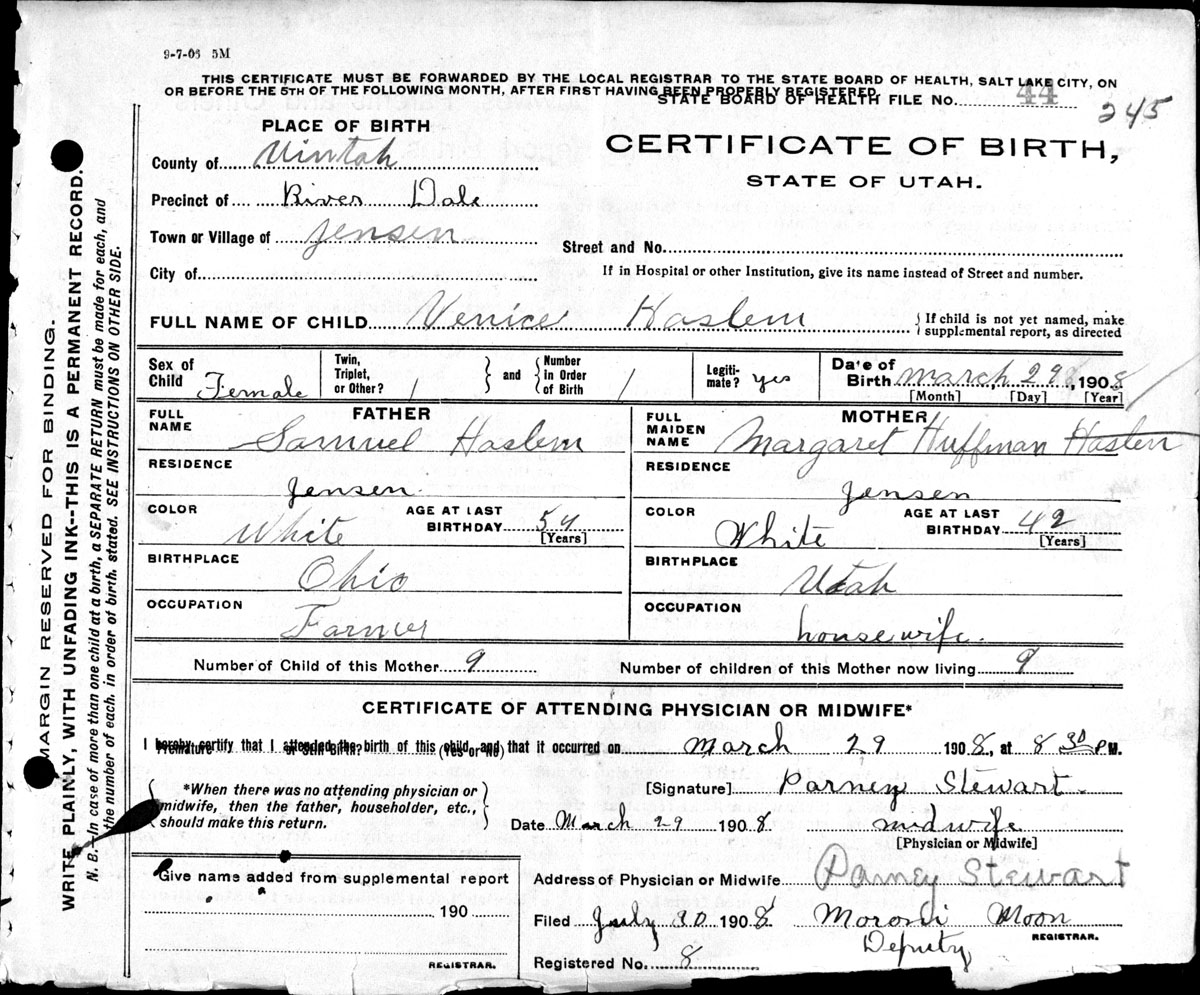 9-7-06 5M
THIS CERTIFICATE MUST BE FORWARDED BY THE LOCAL REGISTRAR TO THE STATE BOARD OF HEALTH, SALT LAKE CITY, ON
OR BEFORE THE 5TH OF THE FOLLOWING MONTH, AFTER FIRST HAVING BEEN PROPERLY REGISTERED.
STATE BOARD OF HEALTH FILE No. 44
245
PLACE OF BIRTH
CERTIFICATE OF BIRTH,
STATE OF UTAH.
County of Uintah
Precinct of River Dale
Town or Village of Jensen
Street and No.
City of
If in Hospital or other Institution, give its name instead of Street and number.
FULL NAME OF CHILD Venice Haslem
{If child is not yet named, make
supplemental report, as directed
Sex of Child Female
Twin, Triplet, or Other? /
and
Number in Order of Birth /
Legiti-mate? yes
Date of Birth March 29, 1908
[Month] [Day] [Year]
FATHER
FULL NAME Samuel Haslem
MOTHER
FULL MAIDEN NAME Margaret Huffman Haslem
RESIDENCE Jensen
RESIDENCE Jensen
COLOR White
AGE AT LAST BIRTHDAY 54
[Years]
COLOR White
AGE AT LAST BIRTHDAY 42
[Years]
BIRTHPLACE Ohio
BIRTHPLACE Utah
OCCUPATION Farmer
OCCUPATION housewife.
Number of Child of this Mother 9
Number of children of this Mother now living 9
CERTIFICATE OF ATTENDING PHYSICIAN OR MIDWIFE*
I hereby certify that I attended the birth of this child, and that it occurred on March 29 1908, at 8 30 P.M.
(Yes or No)
*When there was no attending physician or
midwife, then the father, householder, etc.,
should make this return.
[Signature] Parney Stewart.
Date March 29 1908.
midwife
[Physician or Midwife]
Give name added from supplemental report
190
REGISTRAR.
Address of Physician or Midwife Parney Stewart
Filed July 20 1908 Moroni Moon
REGISTRAR.
Deputy
Registered No. 8
MARGIN RESERVED FOR BINDING.
WRITE PLAINLY, WITH UNFADING INK--THIS IS A PERMANENT RECORD.
N. B.--In case of more than one child at a birth, a SEPARATE RETURN must be made for each, and
the number of each, in order of birth, stated. SEE INSTRUCTIONS ON OTHER SIDE.